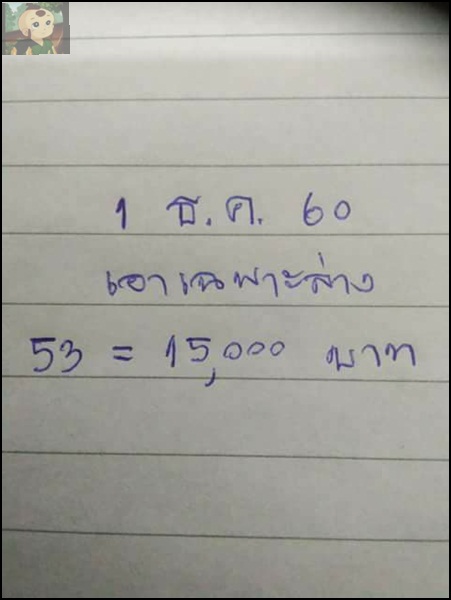 1 ธ.ค. 60
เอาเฉพาะล่าง
53 = 15,000 บาท